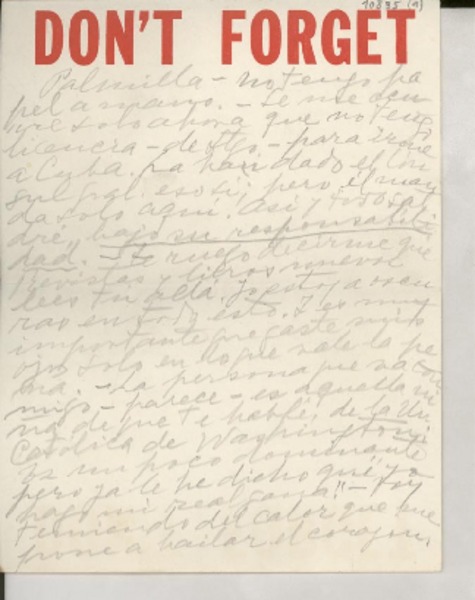 10835 (1)
DON'T FORGET
Palmilla – no tengo pa
pel a mano. – Se me ocu
rre solo ahora que no tengo
licencia – de Sto. – para irme
a Cuba. La han dado el Cón
sul Gral. eso sí; pero él man
da solo aquí. Así y todo sal
dré, bajo su responsabili
dad. – Te ruego decirme qué
revistas y libros nuevos
lees tú allá. Yo estoy a oscu
ras en todo esto. Y es muy
importante que gaste mis
ojos solo en lo que vale la pe
na. – La persona que va con
migo – parece – es aquella ni
na de que te hablé, de la Un.
Católica de Washington.
Es un poco dominante
pero ya le he dicho que "yo
hago mi real gana". – Voy
temiendo del calor que me
pone a bailar el corazón.